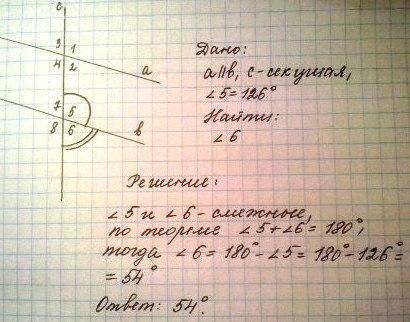 c
3 1
4 2
a
7 5
8 6
b
Дано:
a||b, c-секущая,
∠5=126°
Найти:
∠6
Решение:
∠5 и ∠6 - смежные,
по теореме ∠5+∠6=180°,
тогда ∠6=180°-∠5=180°-126°=
=54°
Ответ: 54°.